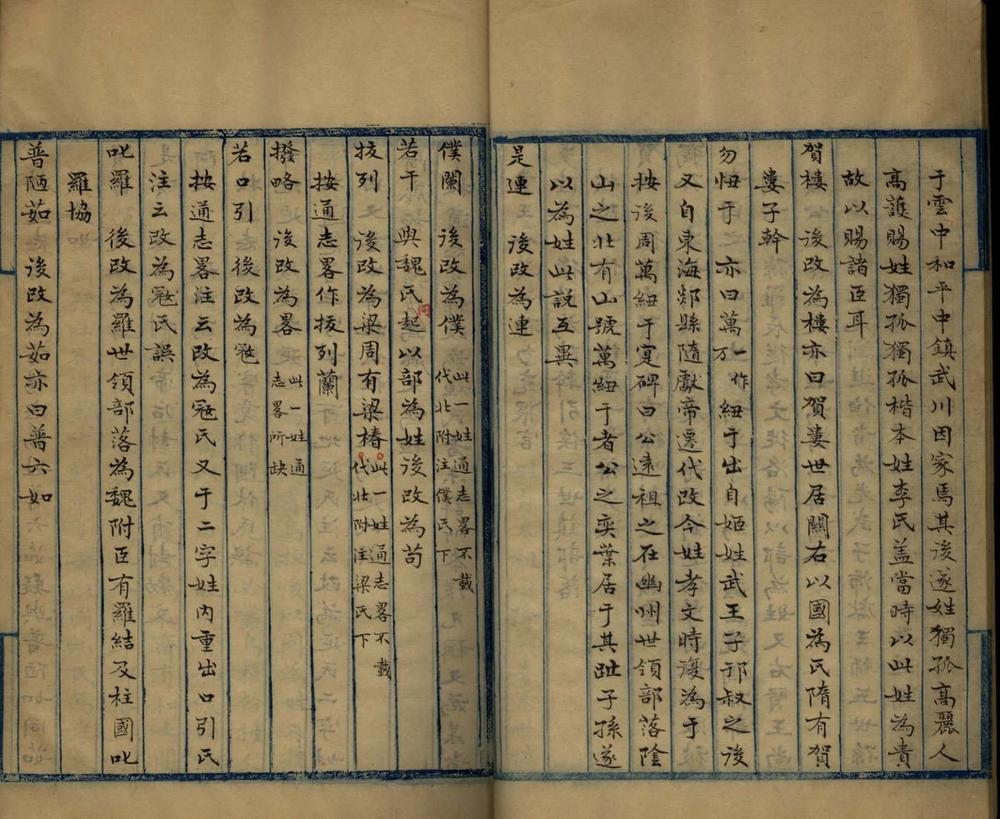 于雲中和平中鎮武川因家焉其後遂姓獨孤高麗人
高護賜姓獨孤獨孤楷本姓李氏盖當時以此姓為貴
故以賜諸臣耳
賀樓　後改為樓亦曰賀婁世居關右以國為氏隋有賀
婁子幹
勿忸于　亦曰萬一作万紐于出自姬姓武王子邘叔之後
又自東海郯縣隨獻帝遷代改今姓孝文時復為于
按後周萬紐于寔碑曰公遠祖之在幽州世領部落陰
山之北有山號萬紐于者公之奕葉居于其趾子孫遂
以為姓此説互異
是連　後改為連
僕闌　後改為僕此一姓通志畧不載代北附注僕氏下
若干　與魏氏同起以部為姓後改為茍
拔列　後改為梁周有梁椿此一姓通志畧不載代北附注梁氏下
按通志畧作拔列蘭
撥略　後改為畧此一姓通志畧所缺
若口引　後改為寇
按通志畧注云改為寇氏又于二字姓内重出口引氏
注云改為寇氏誤
叱羅　後改為羅世領部落為魏附臣有羅結及柱國叱
羅協
普陋茹　後改為茹亦曰普六如